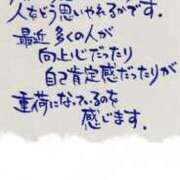 人をどう思いやれるかです。
最近 多くの人が
向上心だったり
自己肯定感だったりが
重荷になっているのを
感じます。